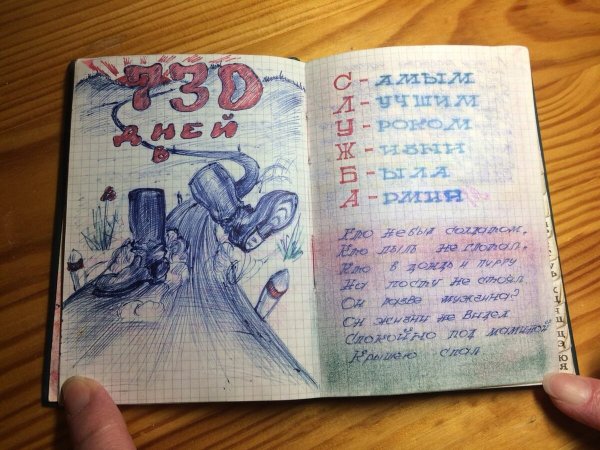 730
ДНЕЙ
В
С - АМЫМ
Л - УЧШИМ
У - РОКОМ
Ж - ИЗНИ
Б - ЫЛА
А - РМИЯ
Кто не был солдатом,
Кто пыль не глотал.
Кто в дождь и пургу
На посту не стоял
Он разве мужчина?
Он жизни не видел
Спокойно под маминой
Крышею спал